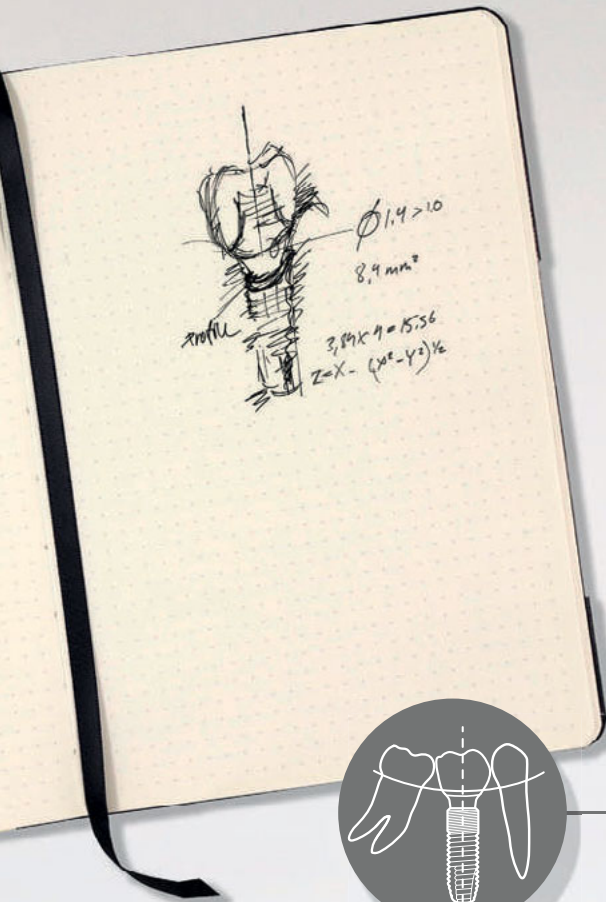 Ø 1,4 > 1.0
8,4 mm²
profile
3,89 x 4 = 15,56
Z=X- (X²-Y²)½